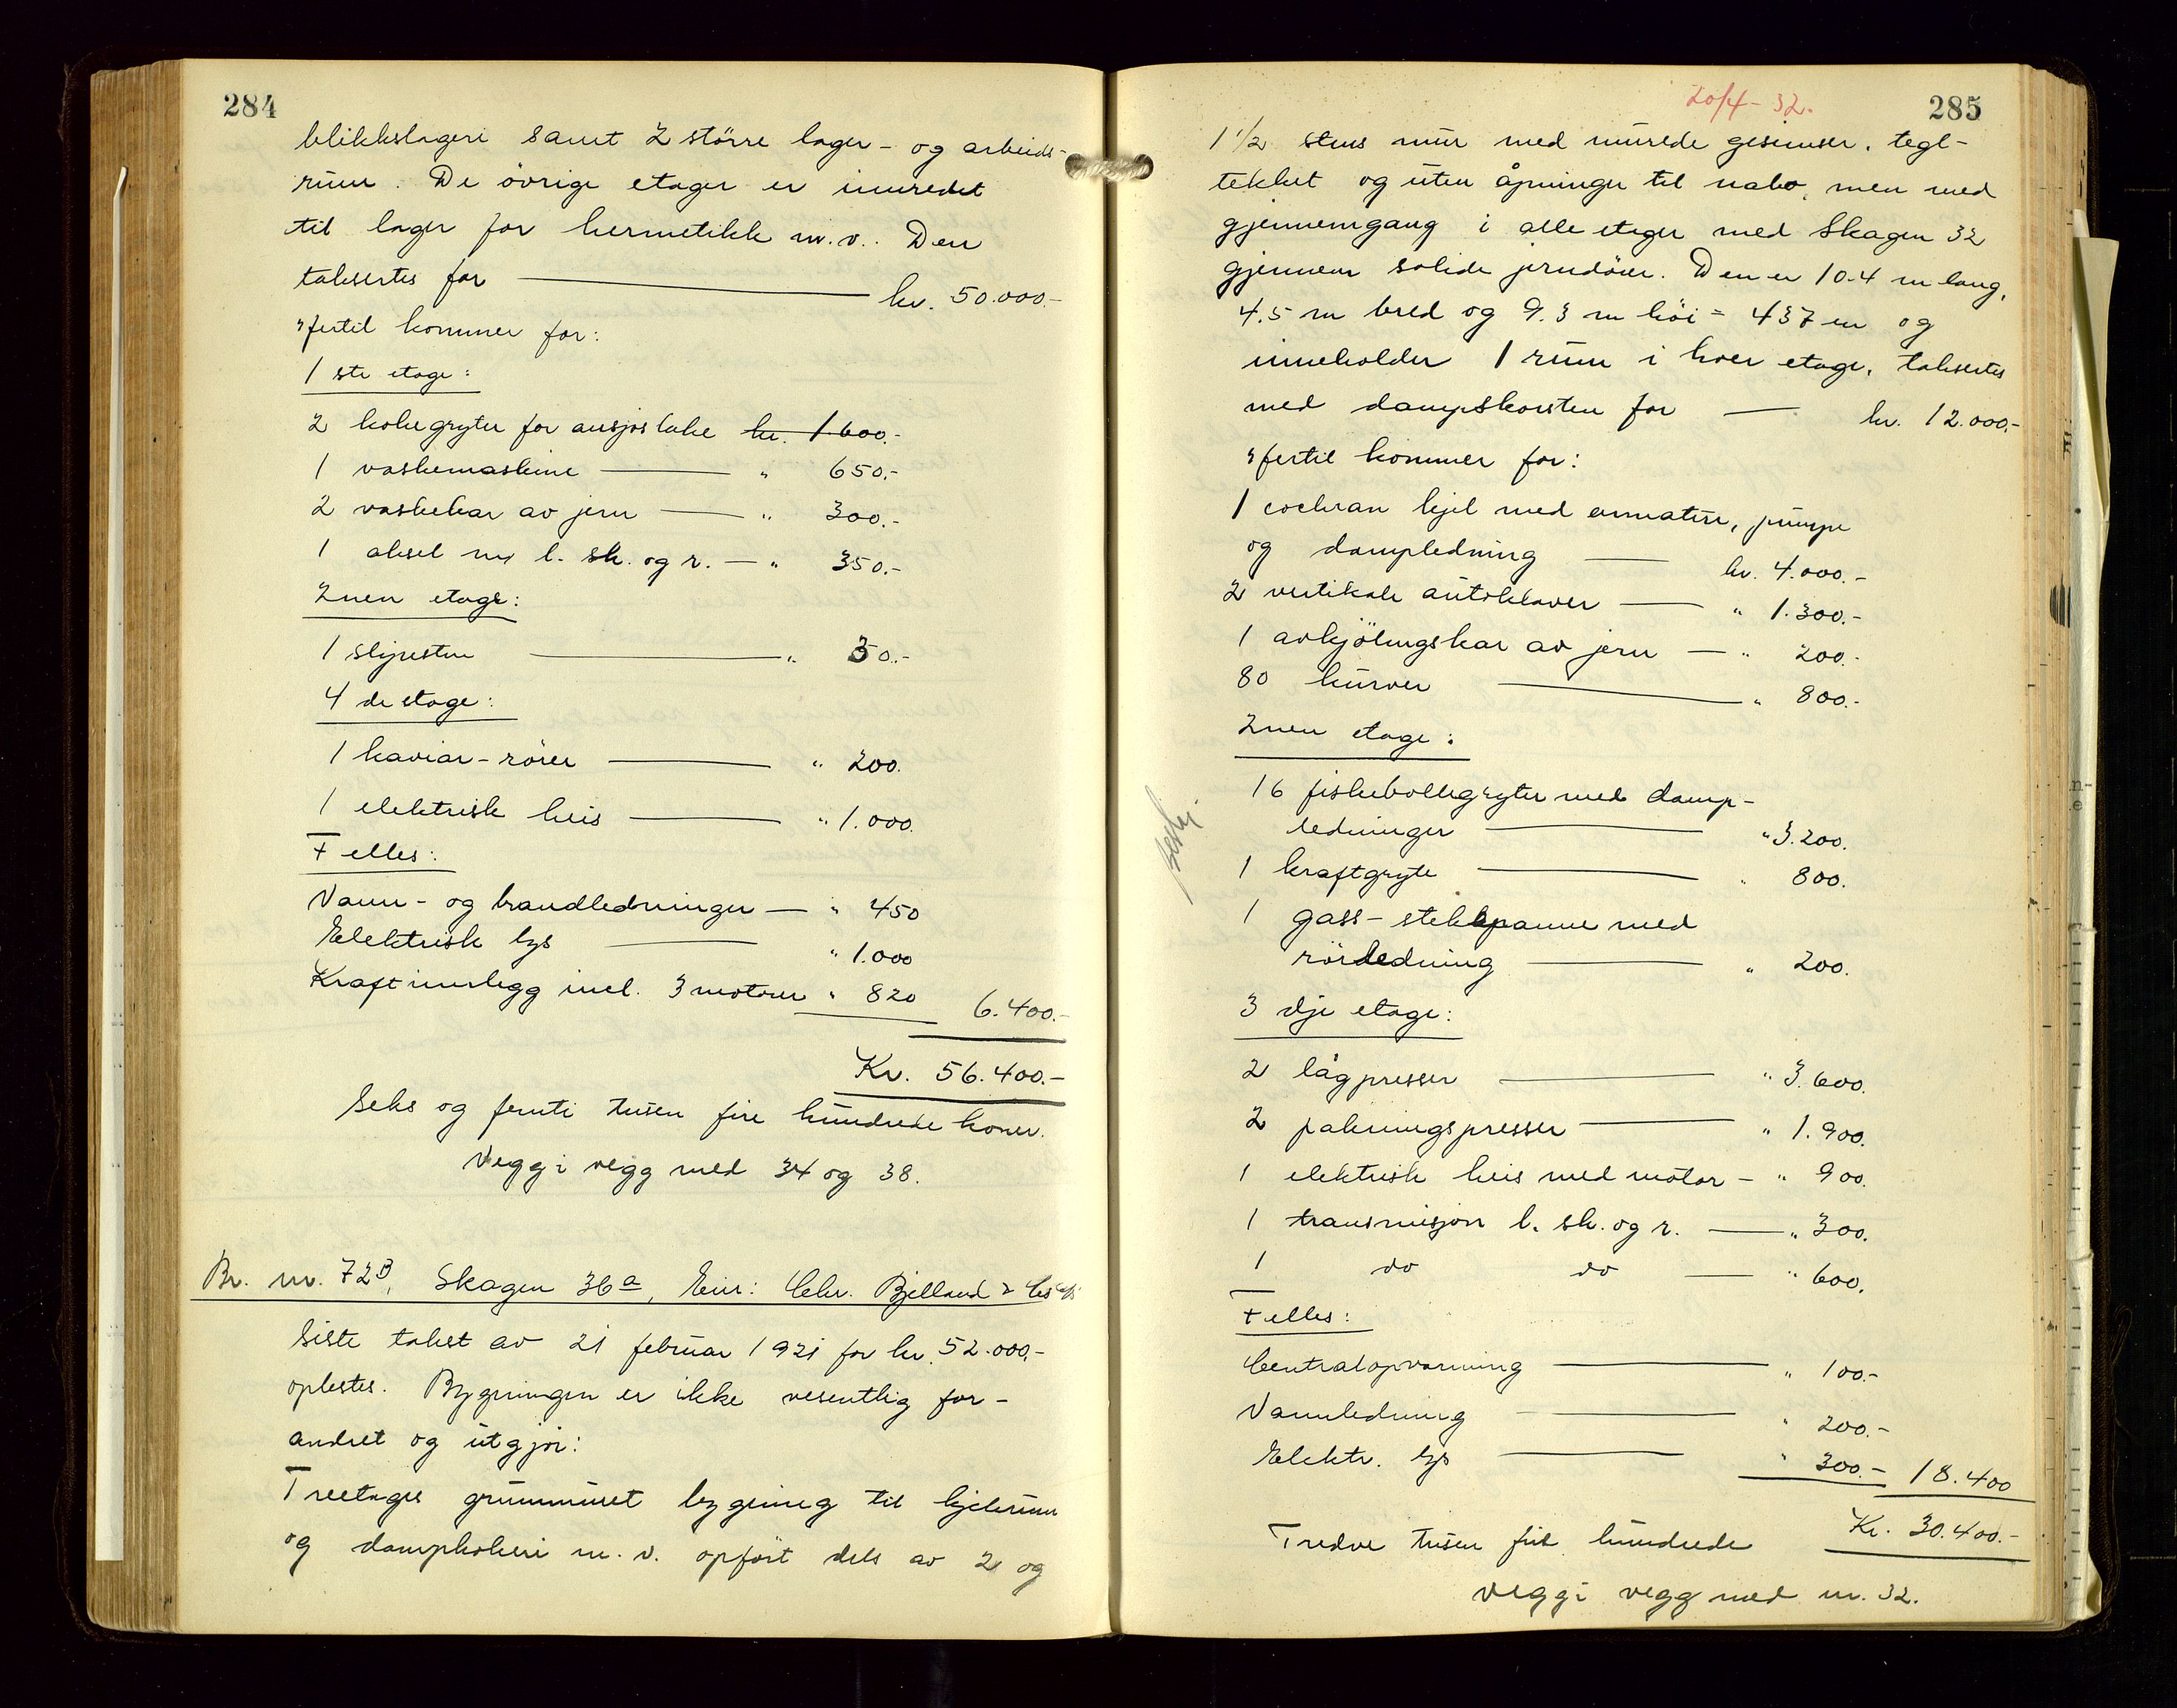 284
blikkslageri samt 2 större lager- og arbeids-
rum. De övrige etager er innredet
til lager for hermetikk m.v. Den
taksertes for kr. 50.000.-
Hertil kommer for:
1ste etage:
2 kokegryter for ansjoslake kr. 1.600.-
1 vaskemaskine " 650.-
2 vaskekar av jern " 300.-
1 aksel m/ l. sk. og r. " 350.-
2nen etage:
1 slipesten " 30.-
4de etage:
1 kaviar-rörer " 200.
1 elektrisk heis " 1.000.
Felles:
Vann- og brandledninger " 450
Elektrisk lys " 1.000
Kraftinnlegg incl. 3 motorer " 820 6.400.-
Kr. 56.400.-
Seks og femti tusen fire hundrede kroner.
Vegg i vegg med 34 og 38.
Br. nr. 72B, Skagen 36a, Eier: Chr. Bjelland & Co
Siste takst av 21 februar 1921 for kr. 52.000,-
oplestes. Bygningen er ikke vesentlig for-
andret og utgjör:
Treetages grunnmuret bygning til kjelerum
og dampkokeri m.v. opfört dels av 2 og
20/4-32.
285
1 1/2 stens mur med murede gesimser, tegl-
tekket og uten åpninger til nabo, men med
gjennemgang i alle etager med Skagen 32
gjennem solide jerndörer. Den er 10.4 m lang,
4.5 m bred og 9.3 m höi = 437 m og
inneholder 1 rum i hver etage, taksertes
med dampskorsten for kr. 12.000,-
Hertil kommer for:
1 cochran kjel med armatur, pumpe
og dampledning kr. 4.000.-
2 vertikale autoklaver " 1.300.-
1 avkjölingskar av jern " 200.-
80 kurver " 800.-
2nen etage:
16 fiskebollegryter med damp-
ledninger " 3.200.
1 kraftgryte " 800.
1 gass-stekepanne med
rörledning " 200.
3dje etage:
2 lågpresser " 3.600.
2 pakningspresser " 1.900.
1 elektrisk heis med motor " 900.
1 transmisjon l. sk. og r. " 300.
1 do do " 600.
Felles:
Centralopvarming " 100.-
Vannledning " 200.-
Elektr. lys " 300.- 18.400
Kr. 30.400.-
Tredve tusen fire hundrede
Vegg i vegg med nr. 32.